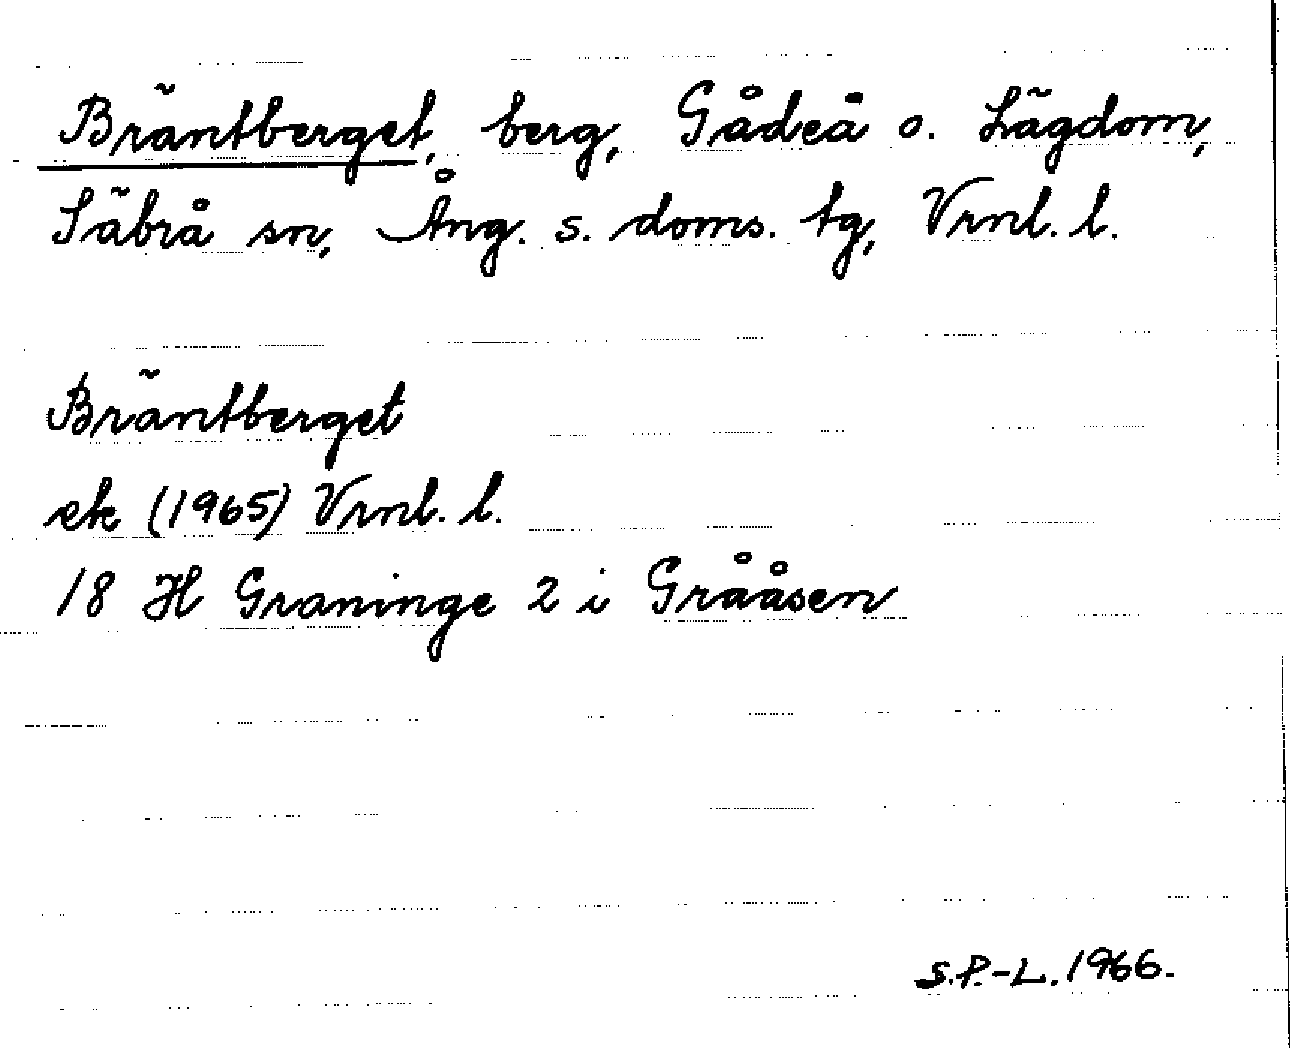 Bräntberget, berg, Gådeå o. Lägdom,
Säbrå sn, Ång. s. doms. tg, Vrnl. l.
Bräntberget
ek (1965) Vrnl. l.
18 H Graninge 2 i Grååsen
S.P.-L. 1966.